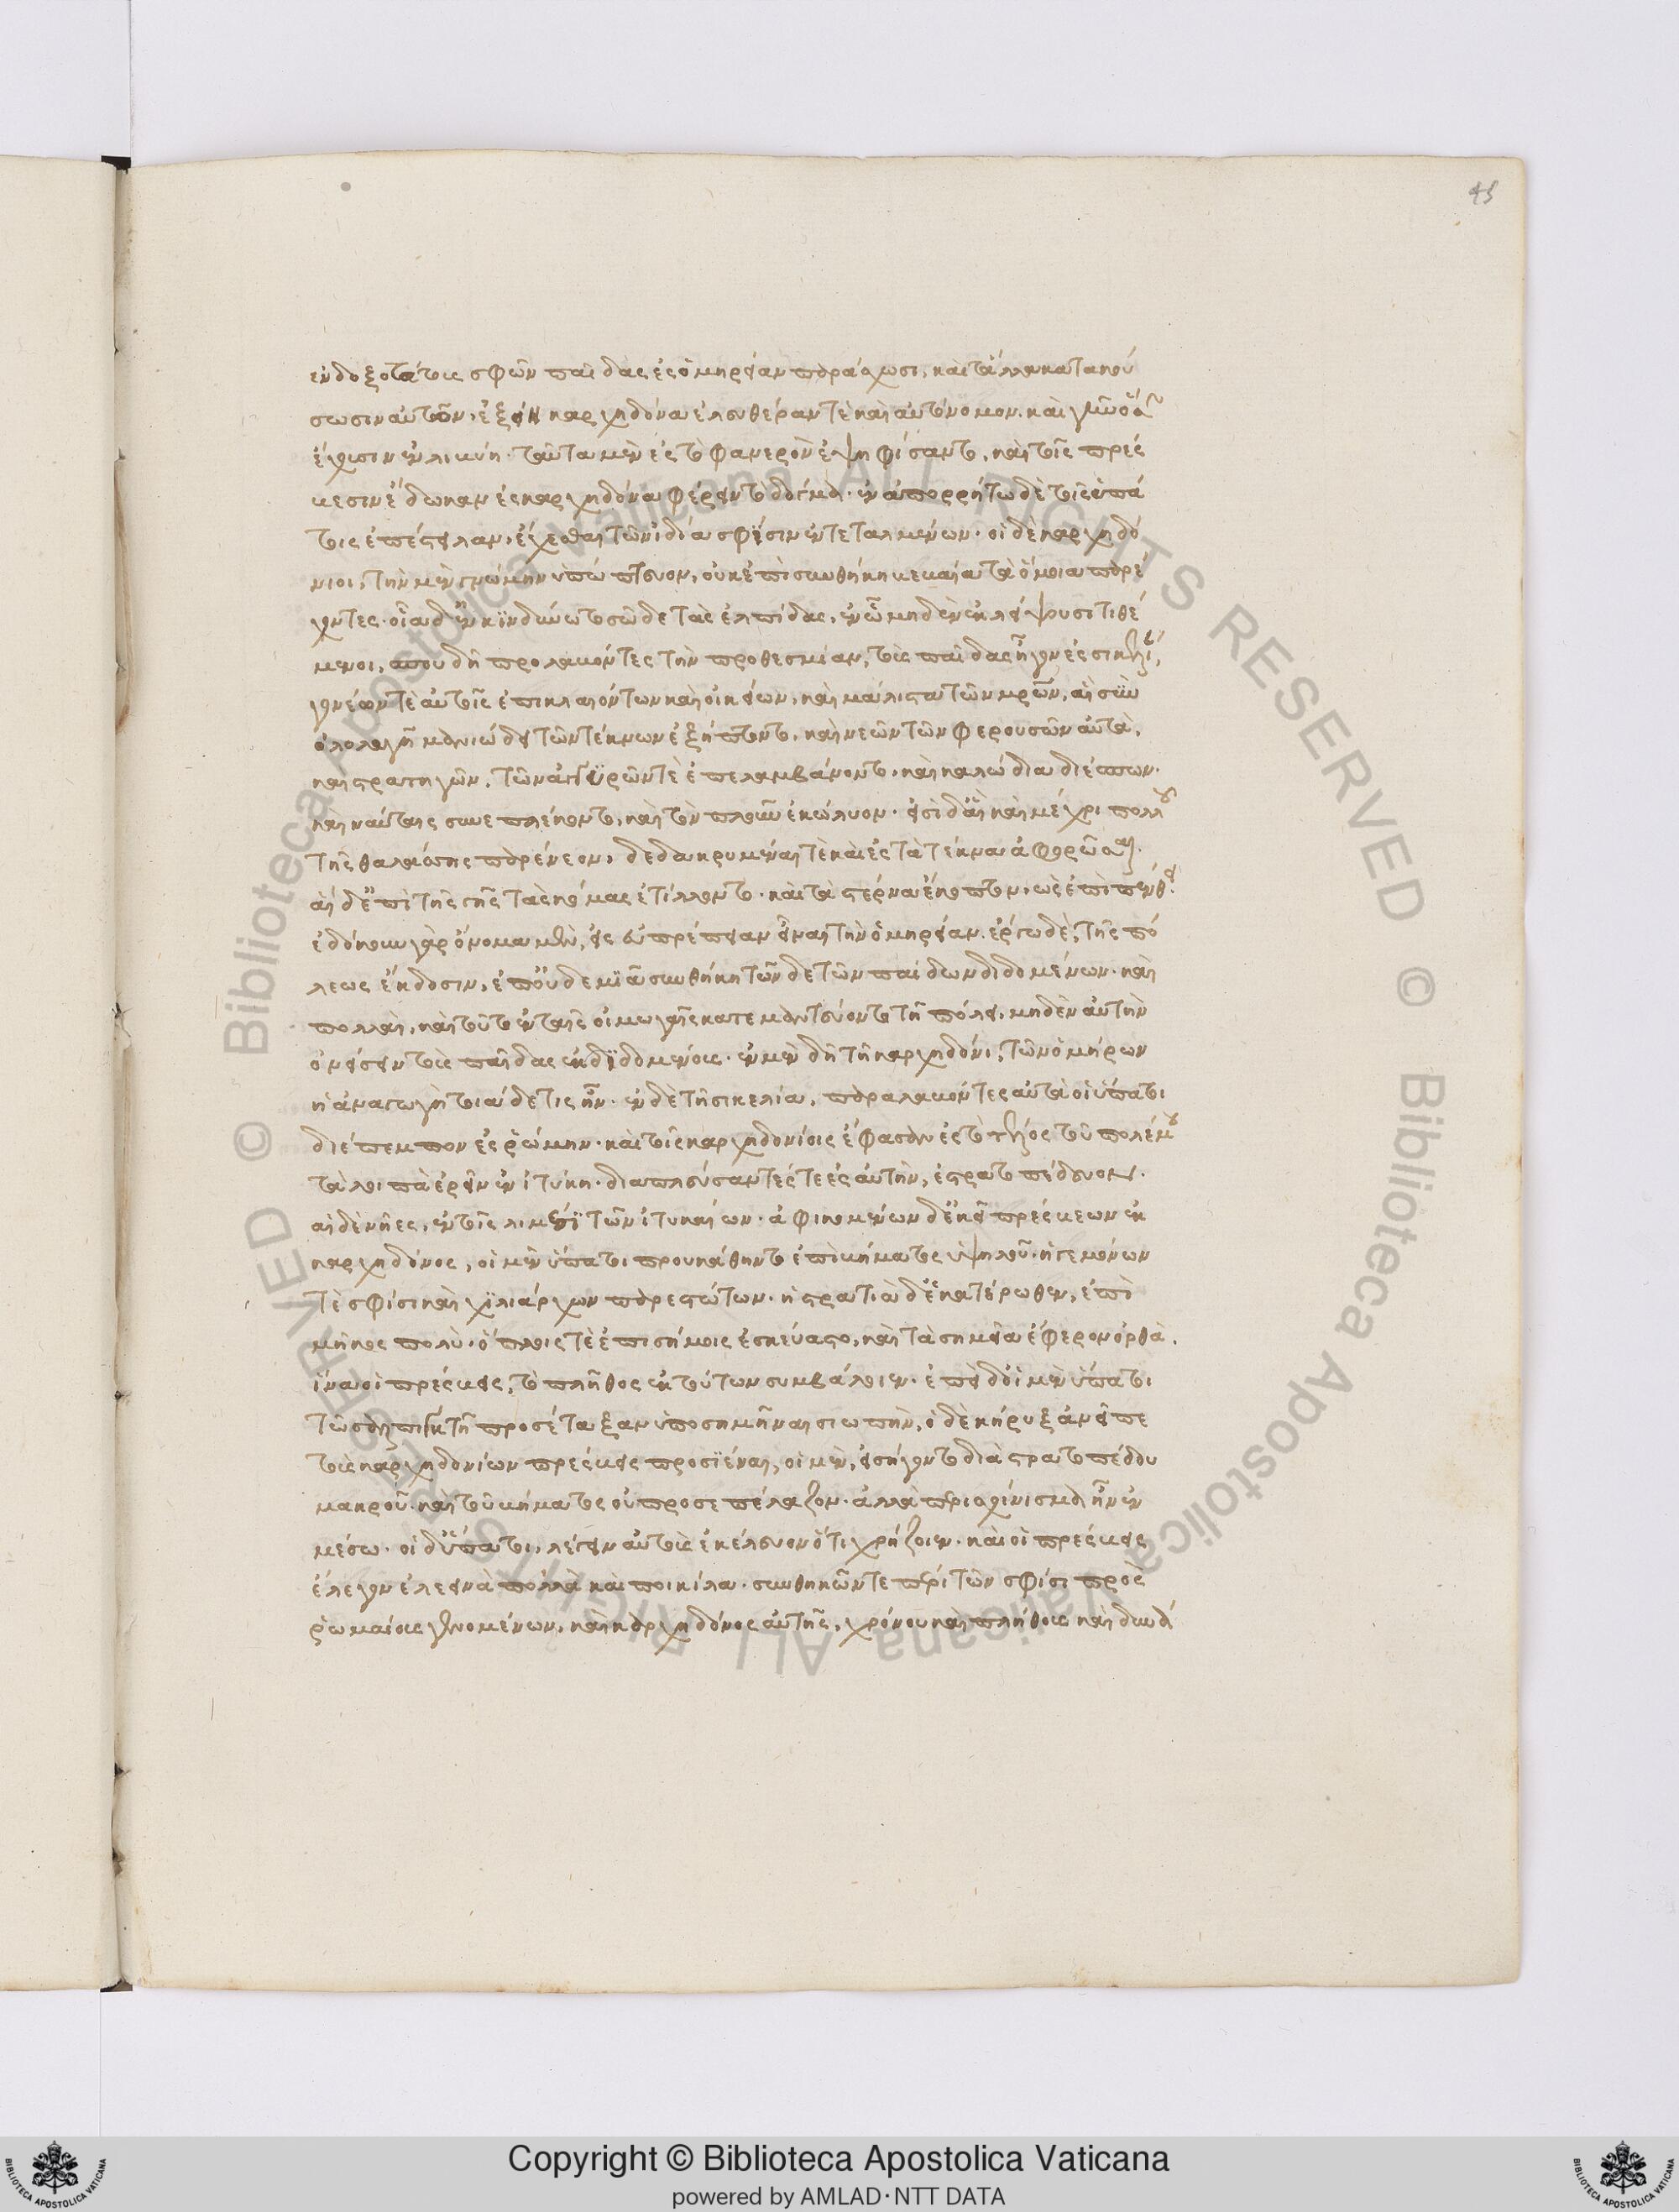 ἐνδοξοτάτους σφῶν παῖδας ἐς ὁμηρείαν παράσχωσι, καὶ τἄλλα κατακού
σωσιν αὐτῶν, ἕξειν καρχηδόνα ἐλευθέραν τὲ καὶ αὐτόνομον. καὶ γῆν ὅσην
ἔχουσιν ἐν λιβύη· ταῦτα μὲν ἐς τὸ φανερὸν ἐψηφίσαντο, καὶ τοῖς πρέσ
βεσιν ἔδωκαν ἐς καρχηδόνα φέρειν τὸ δόγμα· ἐν ἀπορρήτω δὲ τοῖς ὑπά
τοις ἐπέστειλαν, ἔχεσθαι τῶν ἰδία σφίσιν ἐντεταλμένων· οἱ δὲ καρχηδό
νιοι, τὴν μὲν γνώμην ὑπώπτευον, οὐκ ἐπὶ συνθήκη βεβαία τὰ ὅμηρα παρέ
χοντες· οἷα δ' ἐν κινδύνω τοσῶδε τὰς ἐλπίδας, ἐν ὧ μηδὲν ἐκλείψουσι τιθέ
μενοι, σπουδῆ προλαβόντες τὴν προθεσμίαν, τοὺς παῖδας ἦγον ἐς σικελί,
γονέων τὲ αὐτοῖς ἐπικλαιόντων καὶ οἰκείων, καὶ μάλιστα τῶν μητέρων, αἳ σὺν
ὀλολυγῆ μανιώδει τῶν τέκνων ἐξήπτοντο, καὶ νεῶν τῶν φερουσῶν αὐτὰ,
καὶ στρατηγῶν, τῶν ἀγκυρῶν τὲ ἐπελαμβάνοντο, καὶ καλώδια διέσπων·
καὶ ναύταις συνεπλέκοντο, καὶ τὸν πλοῦν ἐκώλυον· εἰσὶ δ' αἳ καὶ μέχρι πολλοῦ
τῆς θαλάσσης παρένεον, δεδακρυμέναι τὲ καὶ ἐς τὰ τέκνα ἀφορῶσαι·
αἱ δ' ἐπὶ τῆς γῆς τὰς κόμας ἐτίλλοντο· καὶ τὰ στέρνα ἔκοπτον, ὡς ἐπὶ πένθει·
ἐδόκουν γὰρ ὄνομα μὲν, ἐς εὐπρέπειαν εἶναι τὴν ὁμηρείαν. ἔργω δὲ, τῆς πό
λεως ἔκδοσιν, ἐπ' οὐδεμιᾶ συνθήκη τῶνδε τῶν παίδων διδομένων· καὶ
πολλαὶ, καὶ τοῦτο ἐν ταῖς οἰμωγαῖς κατεμαντεύοντο τῆ πόλει, μηδὲν αὐτὴν
ὀνήσειν τοὺς παῖδας ἐκδιδομένους· ἐν μὲν δὴ τῆ καρχηδόνι, τῶν ὁμήρων
ἡ ἀναγωγὴ τοιάδε τις ἦν· ἐν δὲ τῆ σικελία, παραλαβόντες αὐτὰ οἱ ὕπατοι
διέπεμπον ἐς ῥώμην· καὶ τοῖς καρχηδονίοις ἔφασαν ἐς τὸ τέλος τοῦ πολέμου
τὰ λοιπὰ ἐρεῖν ἐν ἰτύκη· διαπλεύσαντές τε ἐς αὐτὴν, ἐστρατοπέδευον·
αἱ δὲ νῆες, ἐν τοῖς λιμέσι τῶν ἰτυκαίων· ἀφικομένων δ' ἐκεῖ πρέσβεων ἐκ
καρχηδόνος, οἱ μὲν ὕπατοι προυκάθηντο ἐπὶ βήματος ὑψηλοῦ· ἡγεμόνων
τὲ σφίσι καὶ χιλιάρχων παρεστώτων· ἡ στρατιὰ δ' ἑκατέρωθεν, ἐπὶ
μῆκος πολὺ· ὅπλοις τὲ ἐπισήμοις ἐσκεύαστο, καὶ τὰ σημεῖα ἔφερον ὀρθὰ.
ἵνα οἱ πρέσβεις, τὸ πλῆθος ἐκ τούτων συμβάλοιεν· ἐπεὶ δ' οἱ μὲν ὕπατοι
τῶ σαλπιγκτῆ προσέταξαν ὑποσημῆναι σιωπὴν, ὁ δὲ κήρυξ ἀνεῖπε
τοὺς καρχηδονίων πρέσβεις προσϊέναι, οἱ μὲν, ἐσήγοντο διὰ στρατοπέδου
μακροῦ· καὶ τοῦ βήματος οὐ προσεπέλαζον· ἀλλὰ περισχοίνισμα ἦν ἐν
μέσω· οἱ δ' ὕπατοι, λέγειν αὐτοὺς ἐκέλευον ὅτι χρήζοιεν· καὶ οἱ πρέσβεις
ἔλεγον ἐλεεινὰ πολλὰ καὶ ποικίλα· συνθηκῶν τε πέρι τῶν σφίσι πρὸς
ῥωμαίους γενομένων, καὶ καρχηδόνος αὐτῆς, χρόνου καὶ πλήθους καὶ δυνά